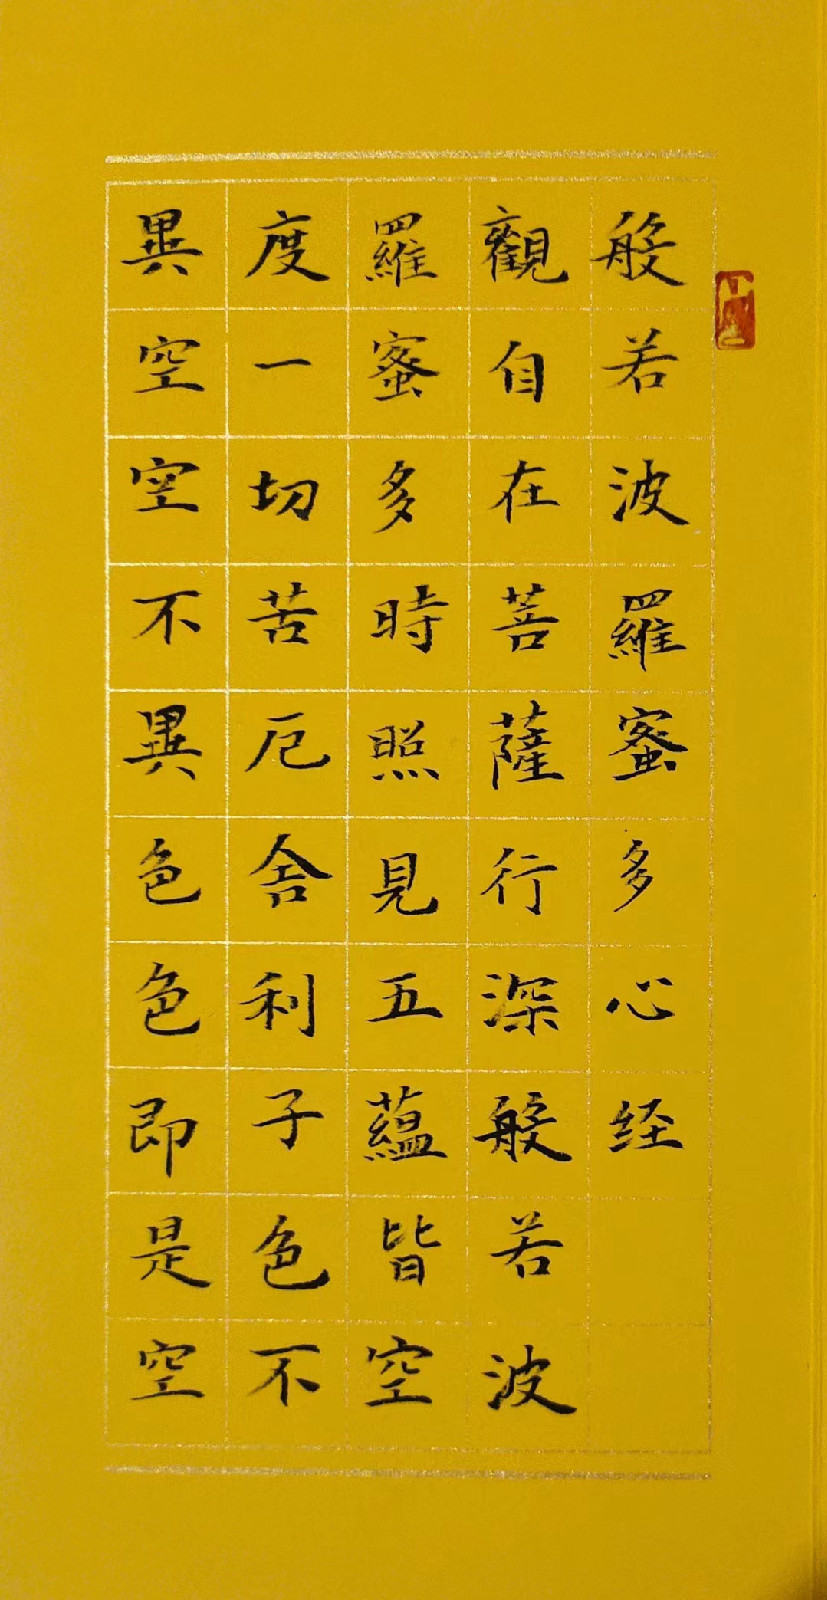 般若波羅蜜多心经
觀自在菩薩行深般若波
羅蜜多時照見五蘊皆空
度一切苦厄舍利子色不
異空空不異色色即是空